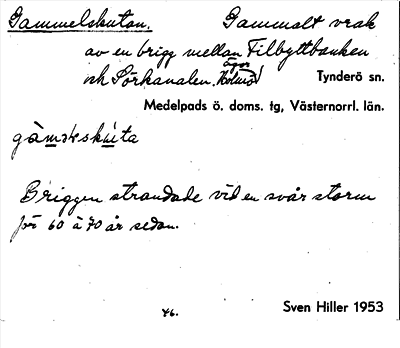 Gammelskutan. Gammalt vrak
av en brigg mellan Filbyttbanken
ägor
och Sörkanalen. Holmö Tynderö sn.
Medelpads ö. doms. tg, Västernorrl. län.
gàm͟skskúta
Briggen strandade vid en svår storm
för 60 à 70 år sedan.
46. Sven Hiller 1953